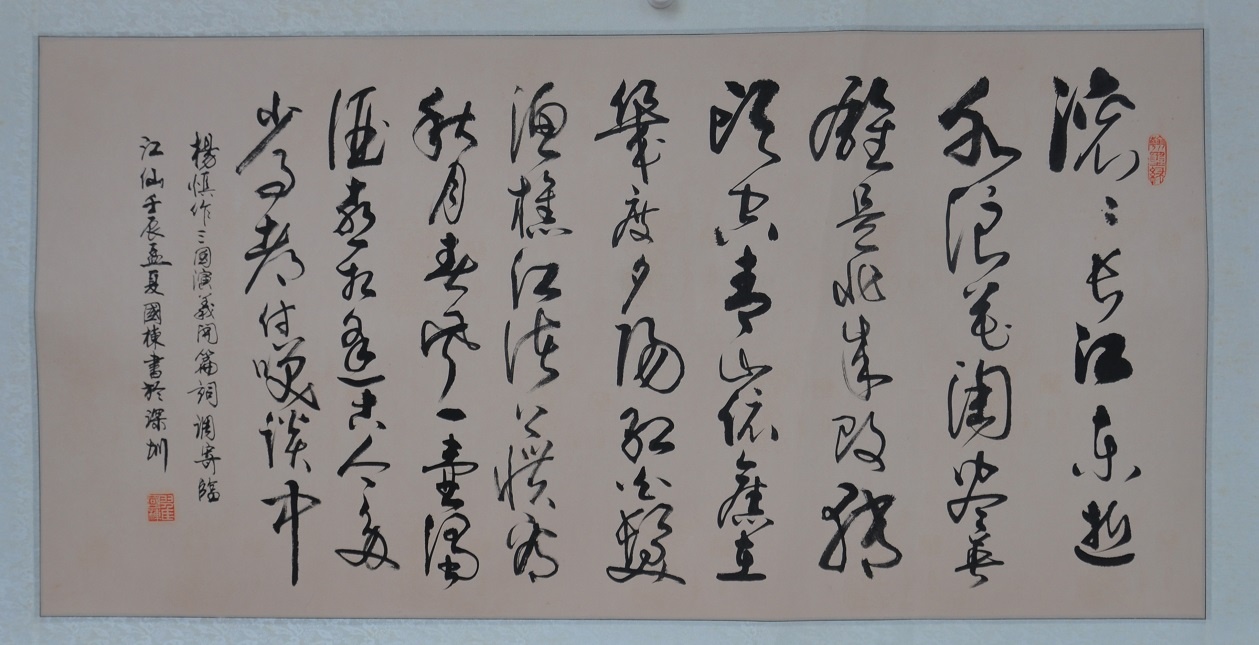 滚〻长江东逝
水浪花淘尽英
雄是非成败转
头空青山依旧在
几度夕阳红白发
渔樵江渚上惯看
秋月春风一壶浊
酒喜相逢古今多
少事都付笑谈中
楊慎作三国演义开篇詞调寄臨
江仙壬辰孟夏國棟書於深圳